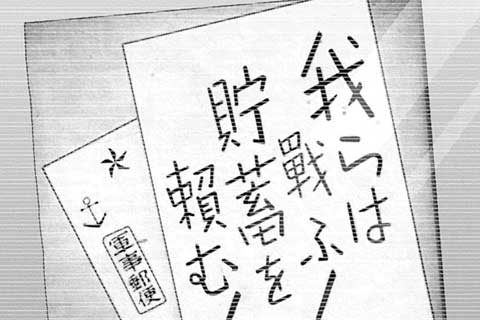 我らは
戰ふ！
貯蓄を
賴む！
軍事郵便